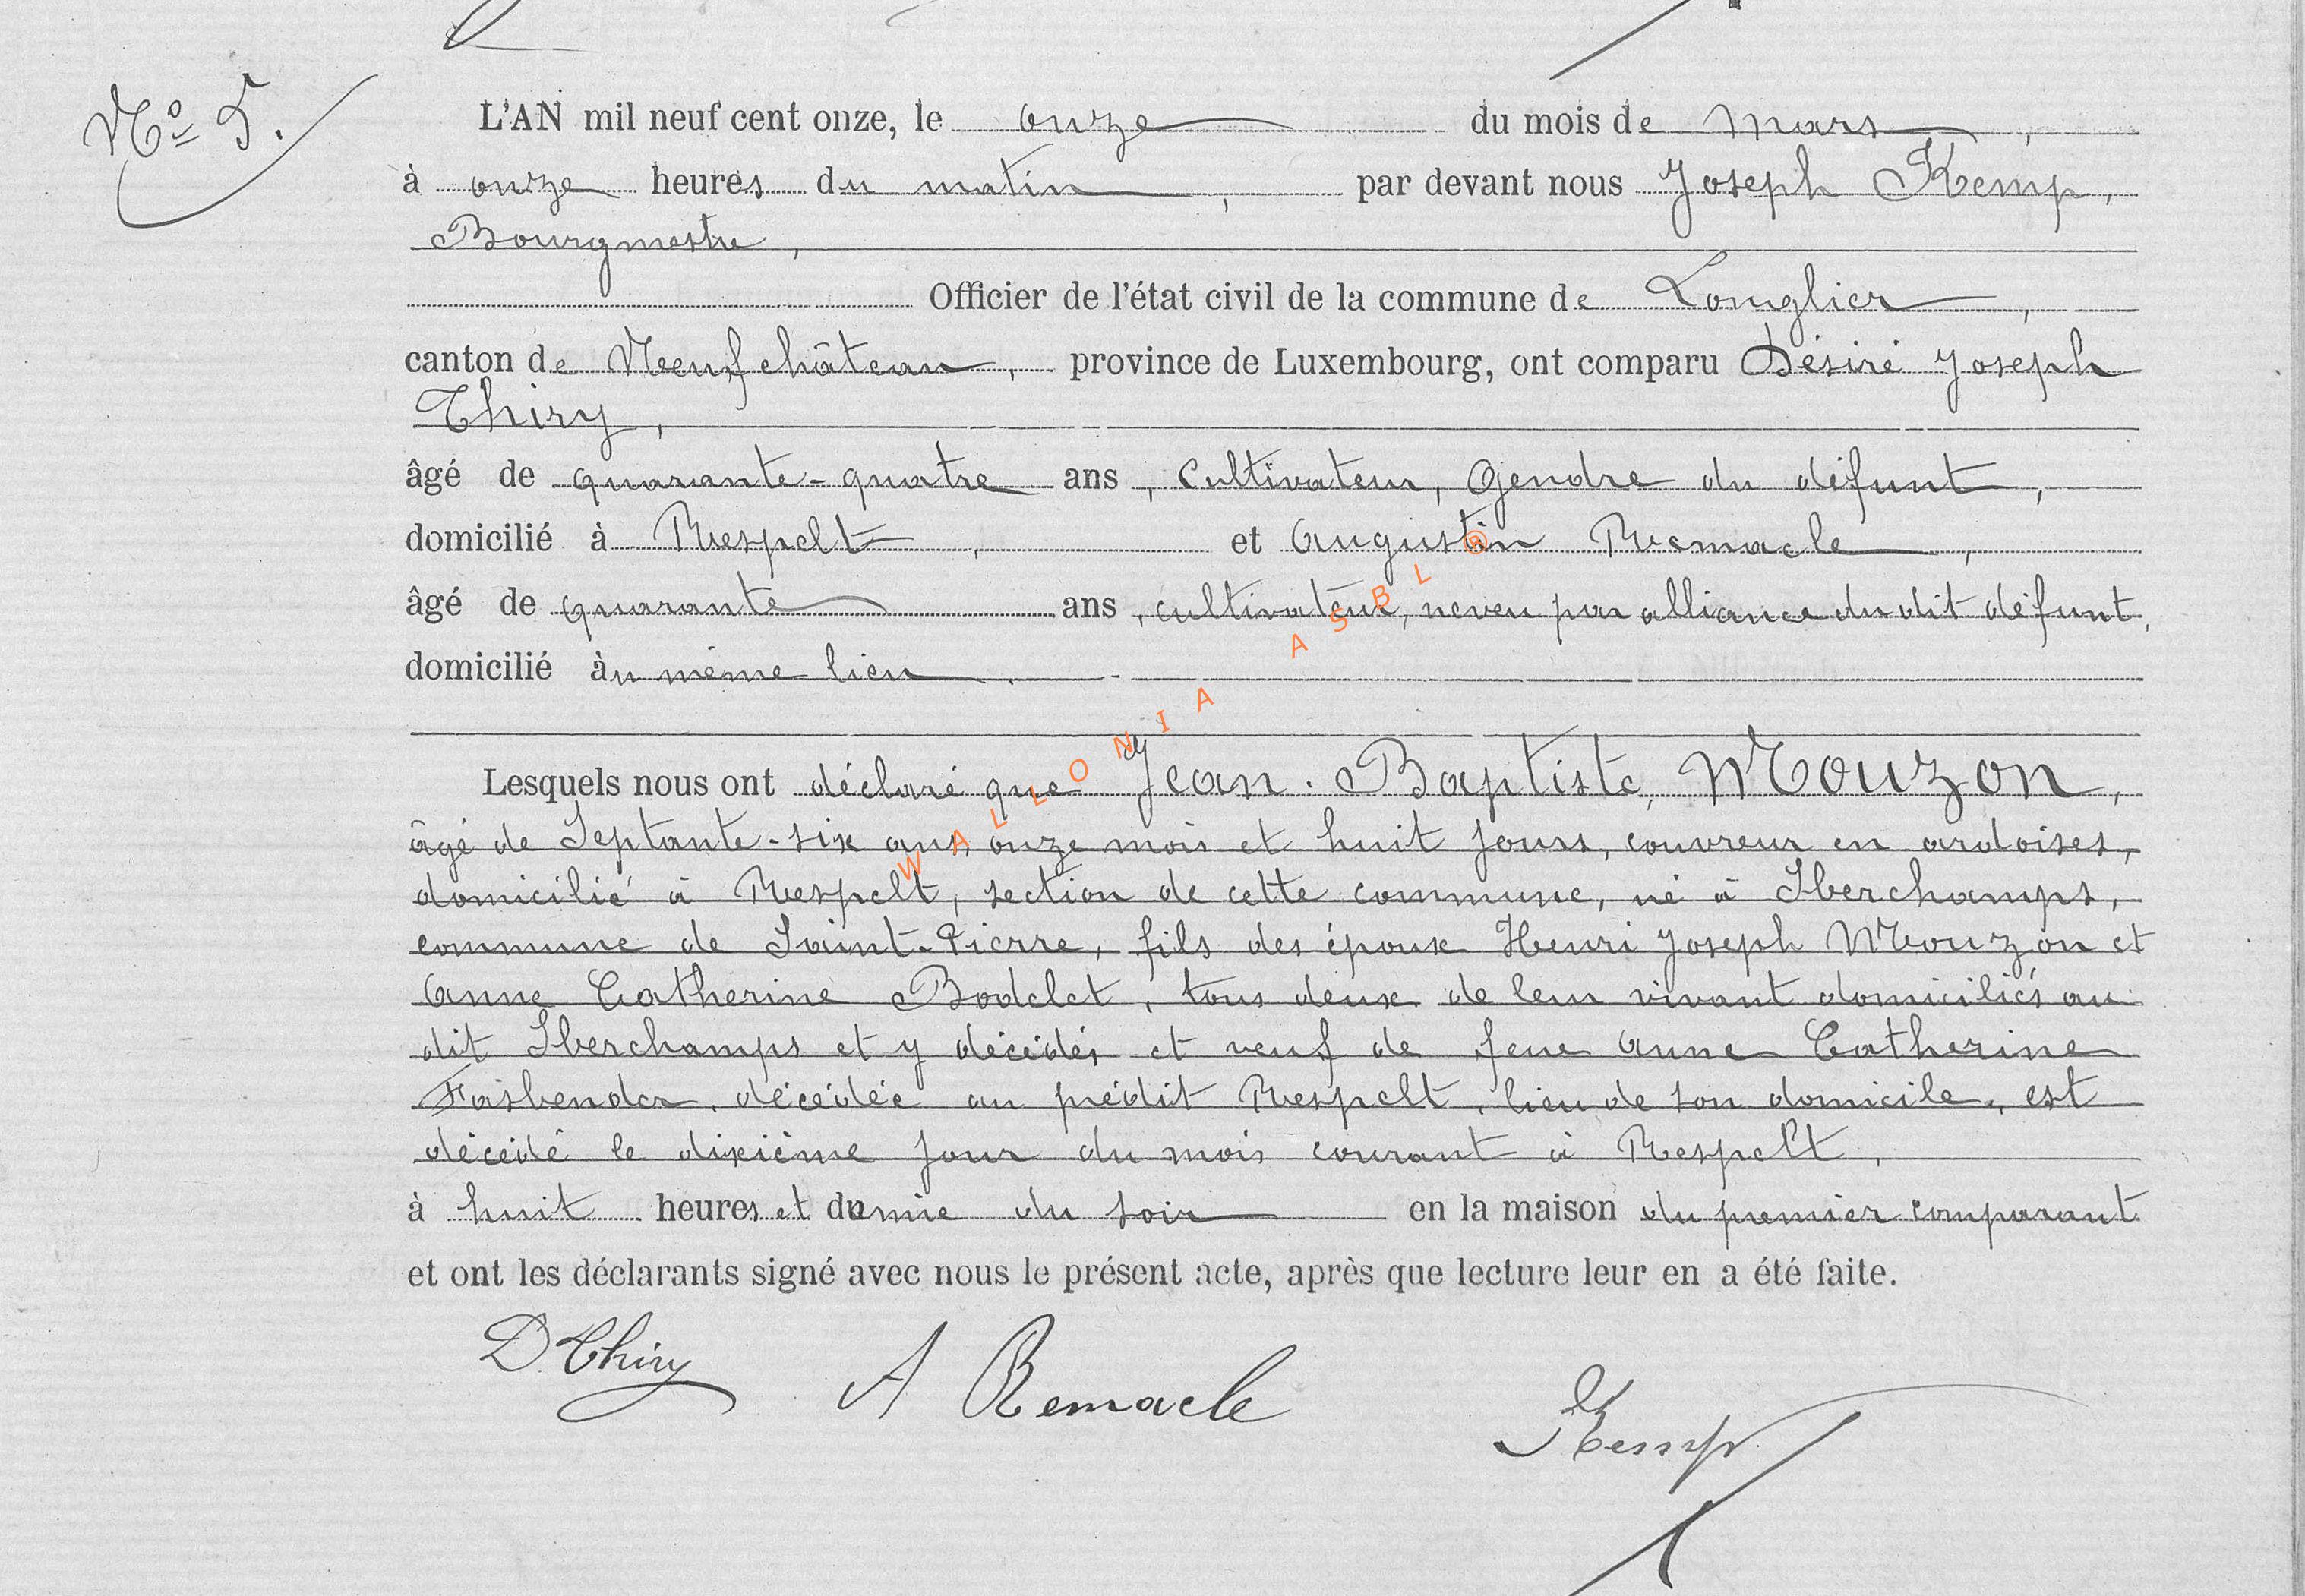 N° 5.
L'AN mil neuf cent onze, le onze du mois de mars,
à onze heures du matin, par devant nous Joseph Kemp,
Bourgmestre,
Officier de l'état civil de la commune de Longlier,
canton de Neufchâteau, province de Luxembourg, ont comparu Désiré Joseph
Thiry,
âgé de quarante-quatre ans, cultivateur, gendre du défunt,
domicilié à Respelt, et Augustin Remacle,
âgé de quarante ans, cultivateur, neveu par alliance du dit défunt,
domicilié au même lieu.
Lesquels nous ont déclaré que Jean-Baptiste, Mouzon,
âgé de Septante-six ans, onze mois et huit jours, couvreur en ardoises,
domicilié à Respelt, section de cette commune, né à Sberchamps,
commune de Saint-Pierre, fils des époux Henri Joseph Mouzon et
Anne Catherine Bodelet, tous deux de leur vivant domiciliés au
dit Sberchamps et y décédés et veuf de feue Anne Catherine
Fasbender, décédée au prédit Respelt, lieu de son domicile, est
décédé le dixième jour du mois courant à Respelt,
à huit heures et demie du soir en la maison du premier comparant
et ont les déclarants signé avec nous le présent acte, après que lecture leur en a été faite.
D Thiry A Remacle Kemp
WALLONIA ASBL ®